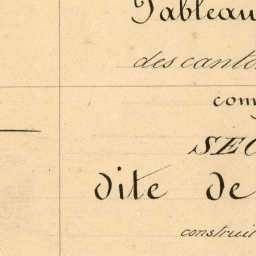 Tableau
des canto
com
SEC
dite de
construit